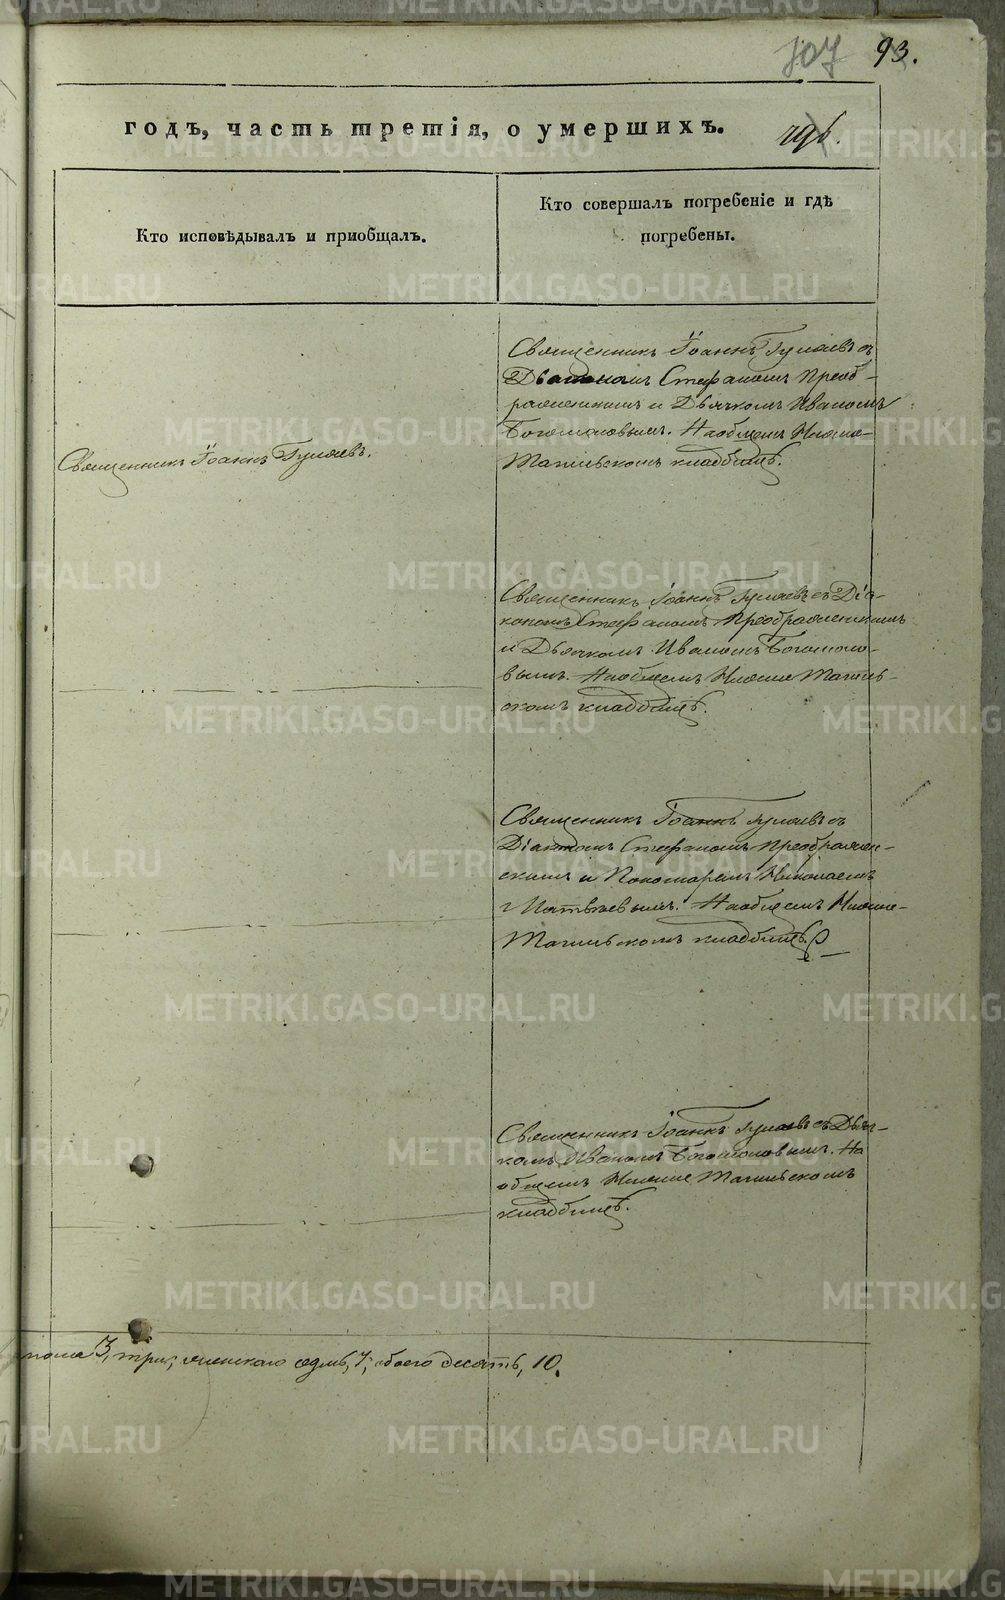 107 93.
годъ, часть третія, о умершихъ.
Кто исповѣдывалъ и пріобщалъ.
Кто совершалъ погребеніе и гдѣ
погребены.
Священникъ Іоаннъ Гуляевъ съ
Діакономъ Стефаномъ Преоб-
раженскимъ и Дьячкомъ Иваномъ
Богомоловымъ. На общемъ Нижне-
Тагильскомъ кладбищѣ.
Священникъ Іоаннъ Гуляевъ.
Священникъ Іоаннъ Гуляевъ съ Діа-
кономъ Стефаномъ Преображенскимъ
и Дьячкомъ Иваномъ Богомоло-
вымъ. На общемъ Нижне Тагиль-
скомъ кладбищѣ.
Священникъ Іоаннъ Гуляевъ съ
Діакономъ Стефаномъ Преображен-
скимъ и Пономаремъ Николаемъ
Матвѣевымъ. На общемъ Нижне-
Тагильскомъ кладбищѣ.
Священникъ Іоаннъ Гуляевъ съ Дьяч-
комъ Иваномъ Богомоловымъ. На
общемъ Нижне Тагильскомъ
кладбищѣ.
пола 3, три, женскаго седмь, 7, обоего десять, 10.
METRIKI.GASO-URAL.RU